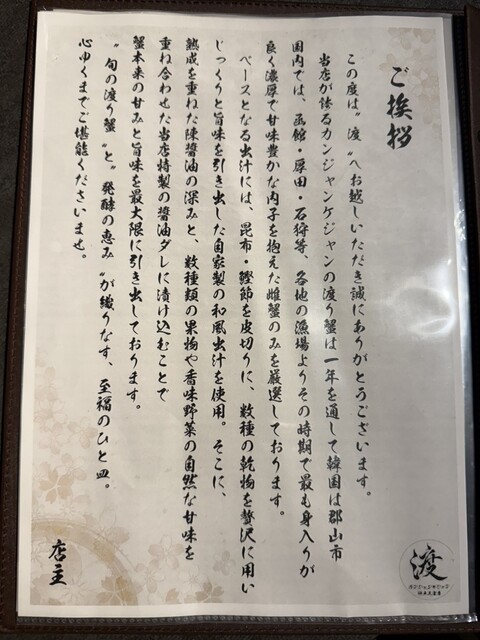 ご挨拶
この度は〝渡〟へお越しいただき誠にありがとうございます。
当店が誇るカンジャンケジャンの渡り蟹は一年を通して韓国は郡山市
国内では、函館・厚田・石狩等、各地の漁場よりその時期で最も身入りが
良く濃厚で甘味豊かな内子を抱えた雌蟹のみを厳選しております。
ベースとなる出汁には、昆布・鰹節を皮切りに、数種の乾物を贅沢に用い
じっくりと旨味を引き出した自家製の和風出汁を使用。そこに、
熟成を重ねた陳醤油の深みと、数種類の果物や香味野菜の自然な甘味を
重ね合わせた当店特製の醤油ダレに漬け込むことで
蟹本来の甘みと旨味を最大限に引き出しております。
〝旬の渡り蟹〟と〝発酵の恵み〟が織りなす、至福のひと皿。
心ゆくまでご堪能くださいませ。
店主
渡